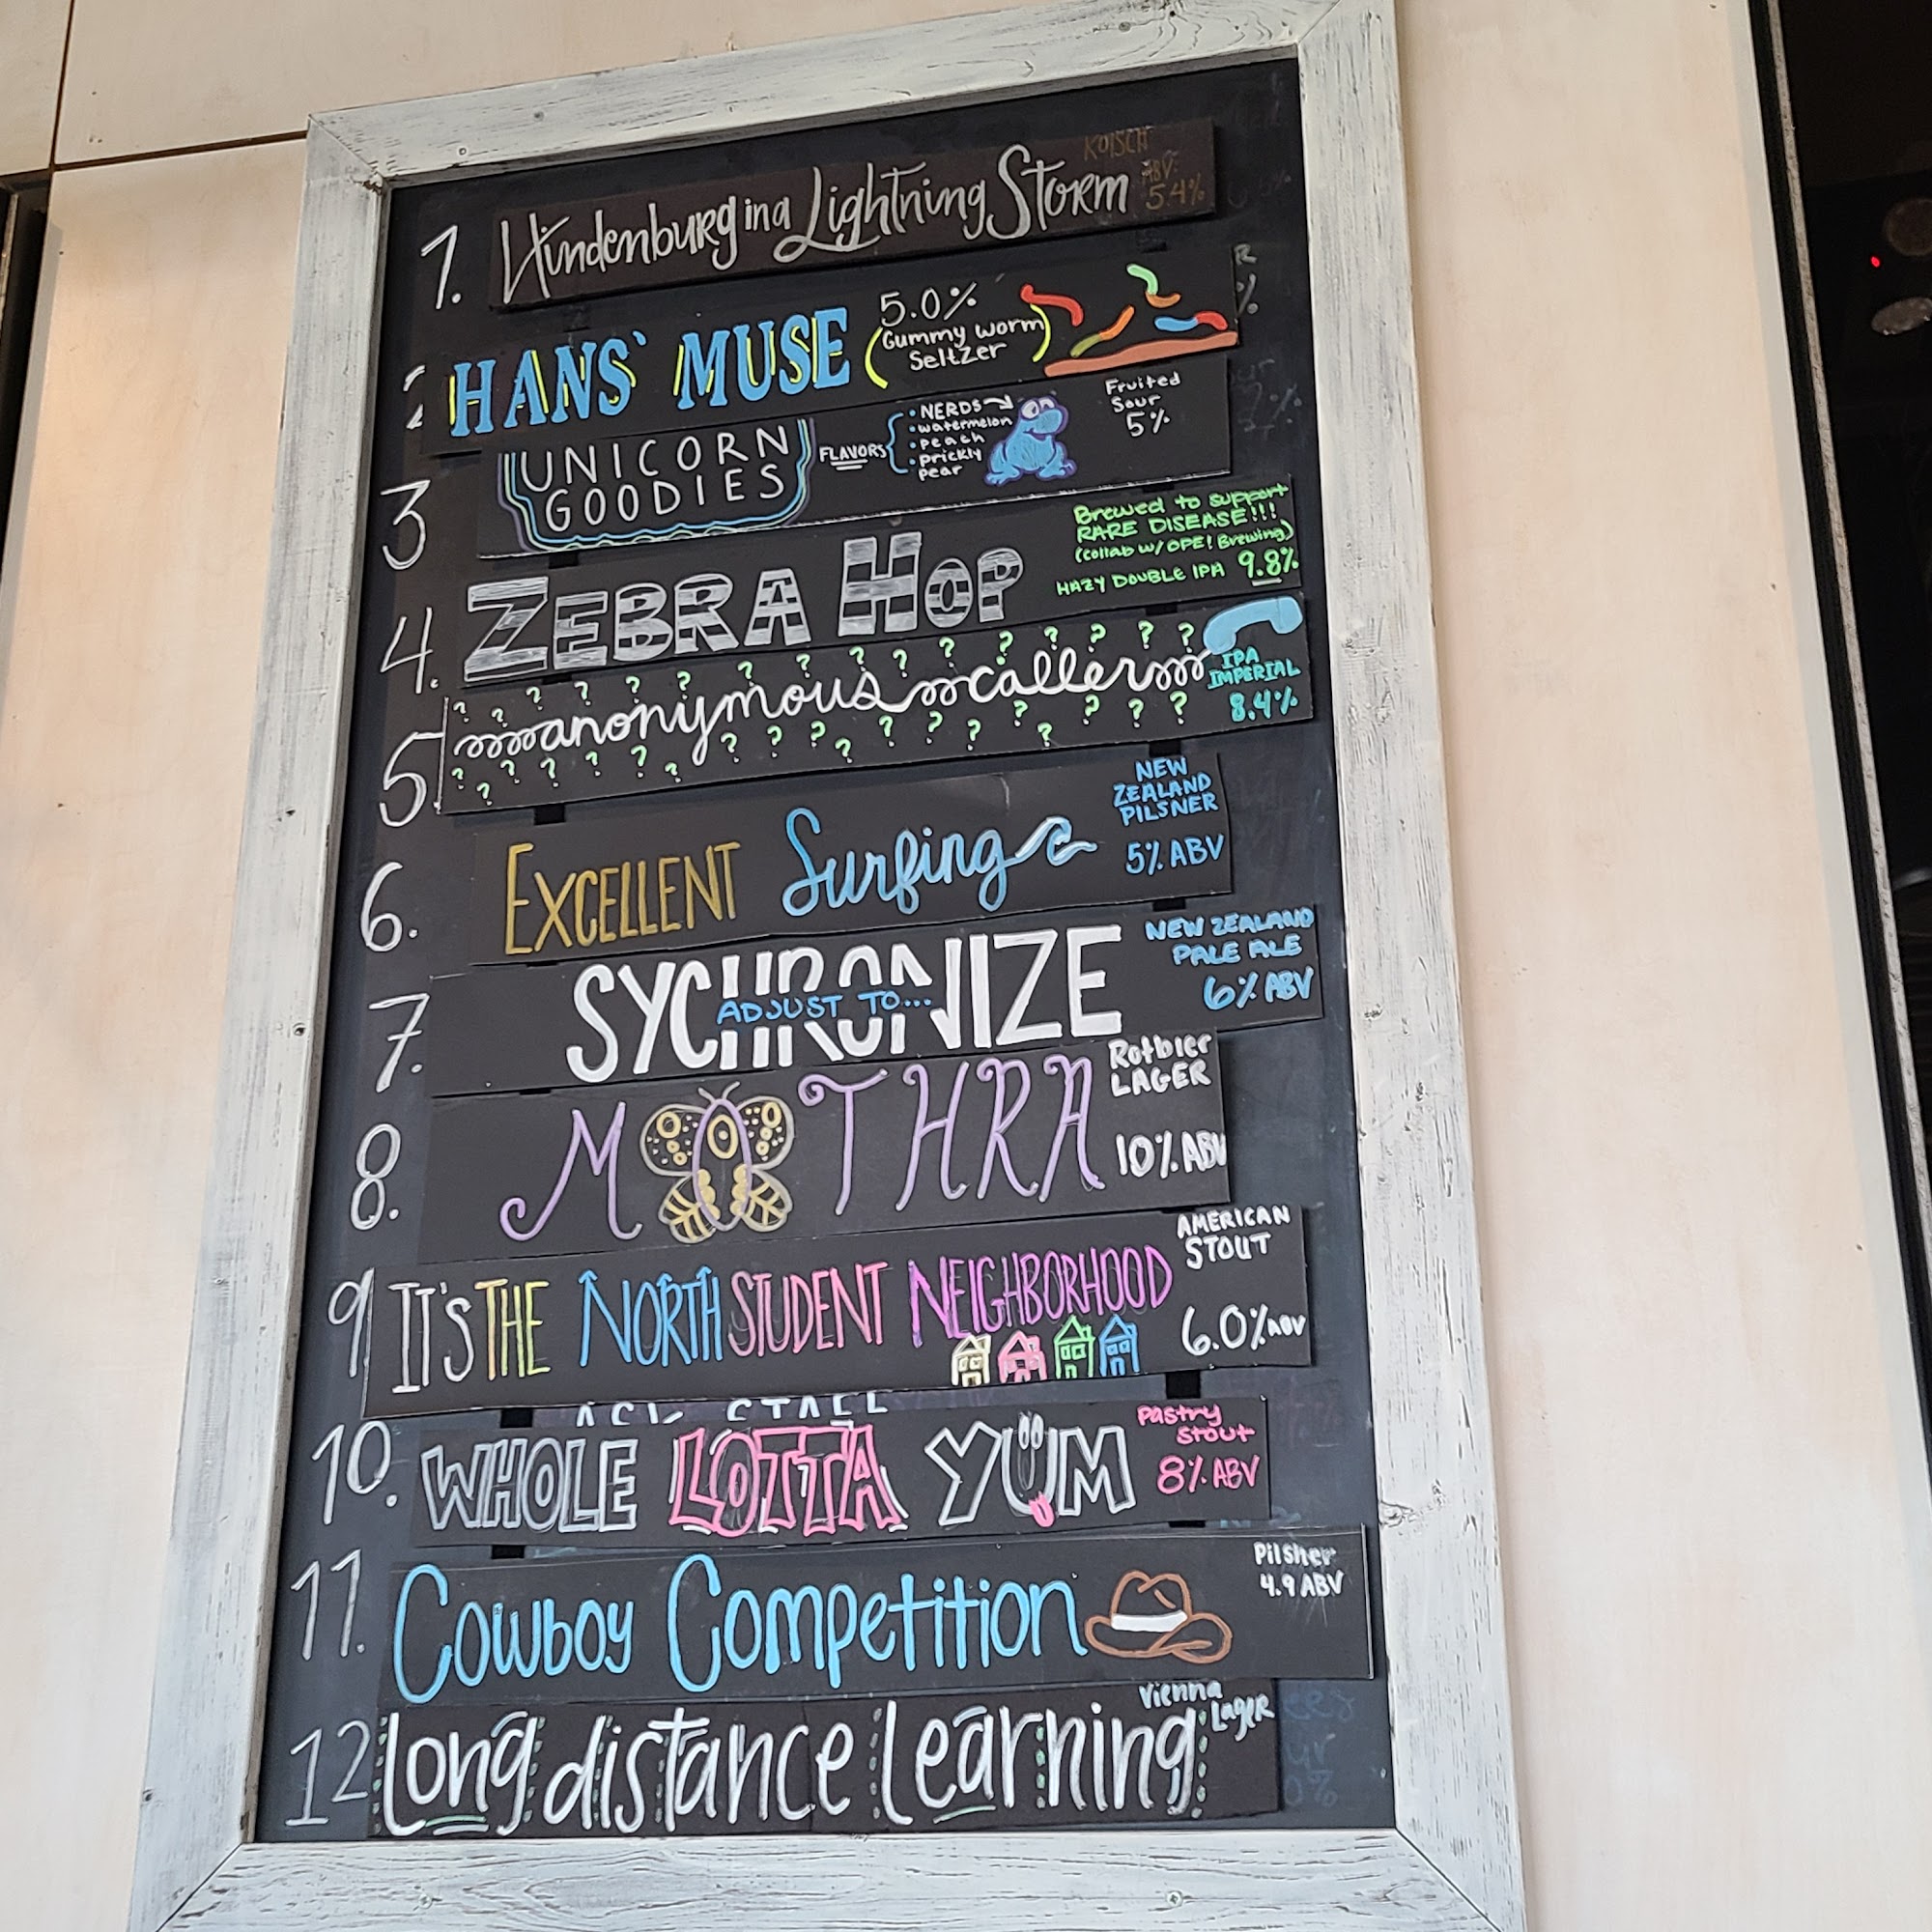 1. Hindenburg in a Lightning Storm
KOLSCH
ABV:
5.4%
2
HANS' MUSE
5.0%
(Gummy worm
Seltzer)
3
UNICORN
GOODIES
FLAVORS
• NERDS
• watermelon
• peach
• prickly
pear
Fruited
Sour
5%
4. ZEBRA HOP
Brewed to support
RARE DISEASE!!!
(collab w/ OPE! Brewing)
HAZY DOUBLE IPA 9.8%
5 anonymous caller
IPA
IMPERIAL
8.4%
6. EXCELLENT Surfing
NEW
ZEALAND
PILSNER
5% ABV
7. SYCHRONIZE
ADJUST TO...
NEW ZEALAND
PALE ALE
6% ABV
8. MOTHRA
Rotbier
LAGER
10% ABV
9 IT'S THE NORTH STUDENT NEIGHBORHOOD
AMERICAN
STOUT
6.0% ABV
ASK STAFF
10. WHOLE LOTTA YUM
Pastry
Stout
8% ABV
11. Cowboy Competition
Pilsner
4.9 ABV
12 Long distance Learning
Vienna
Lager